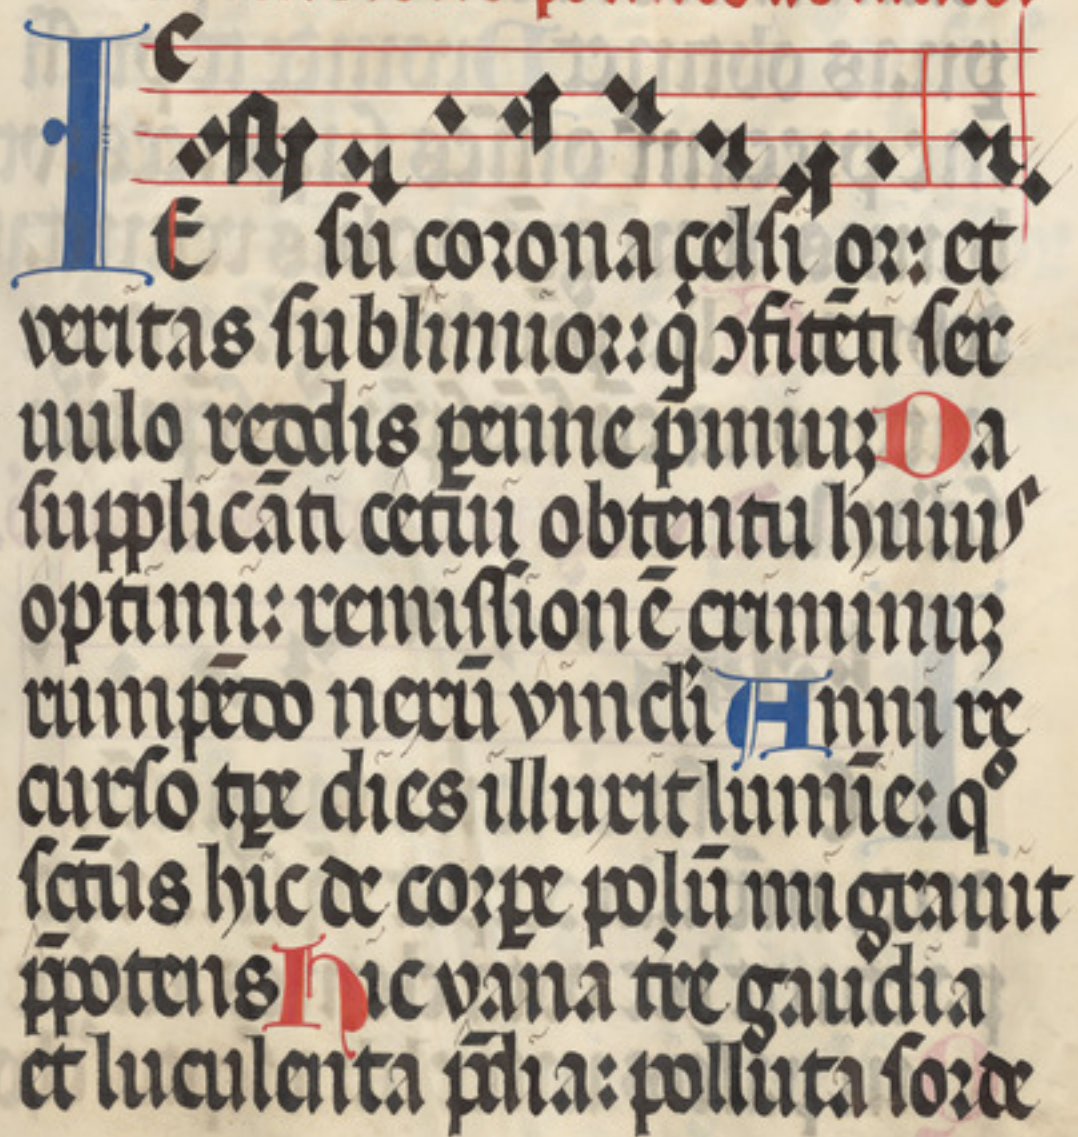 IE ſu corona celſi or: et
veritas ſublimior: q̇ ↄfitēti ſer
uulo reddis perenne p̄miuꝫ Da
ſupplicāti cetui obtentu huiuſ
optimi: remiſſionē criminuꝫ
rumpēdo nexū vincli Anni re
curſo tꝑe dies illuxit lumīe: qͦ
ſctūs hic de corꝑe polū migrauit
p̄potens Hic vana tr̄e gaudia
et luculenta p̄dia: polluta ſorde